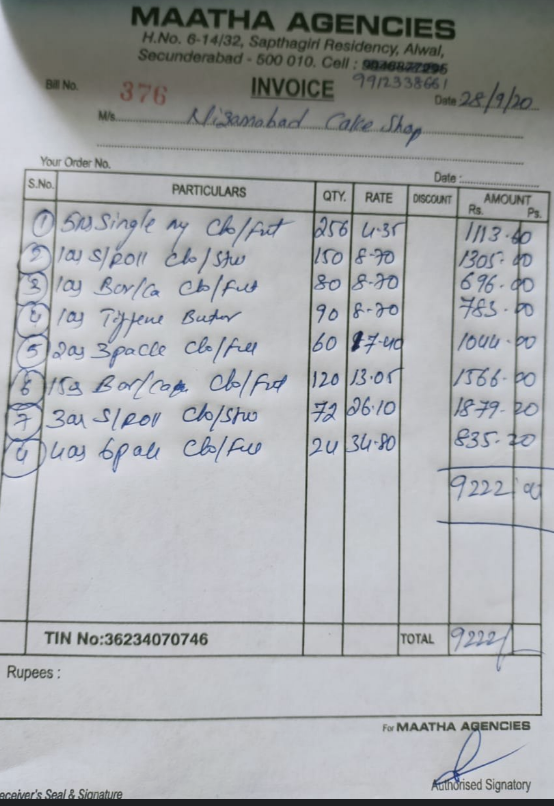 MAATHA AGENCIES
H.No. 6-14/32, Sapthagiri Residency, Alwal,
Secunderabad - 500 010. Cell :
9912338661
Bill No. 376 INVOICE Date 28/9/20
M/s. Nizamabad Cake Shop
Your Order No. Date :
S.No. PARTICULARS QTY. RATE DISCOUNT AMOUNT
Rs. Ps.
1 Single Cho/Frt 256 4.35 1113.60
2 10rs S/Roll Cho/Stw 150 8-70 1305.00
3 10rs Bar/Ca Cho/Frt 80 8-70 696.00
4 10rs 90 8-70 783.00
5 20rs 3pack Cho/Frt 60 17-40 1044.00
6 15rs Bar/ Cho/Frt 120 13.05 1566.00
7 30rs S/Roll Cho/Stw 72 26.10 1879.20
6pack Cho/Frt 24 34.80 835.20
9222 00
TIN No:36234070746 TOTAL 9222/
Rupees :
For MAATHA AGENCIES
Authorised Signatory
eceiver's Seal & Signature